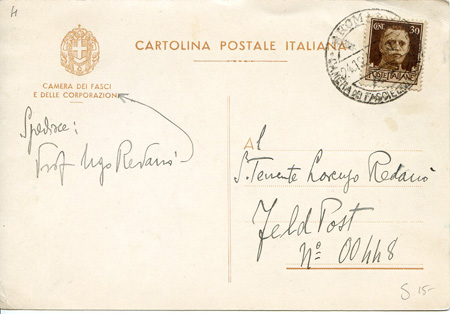 H
CARTOLINA POSTALE ITALIANA
CAMERA DEI FASCI
E DELLE CORPORAZIONI
POSTE ITALIANE
30
ROMA
Spedisce:
Prof Ugo Redanò
Al
S. Tenente Lorenzo Redanò
Feld Post
N° 00448
S 15-